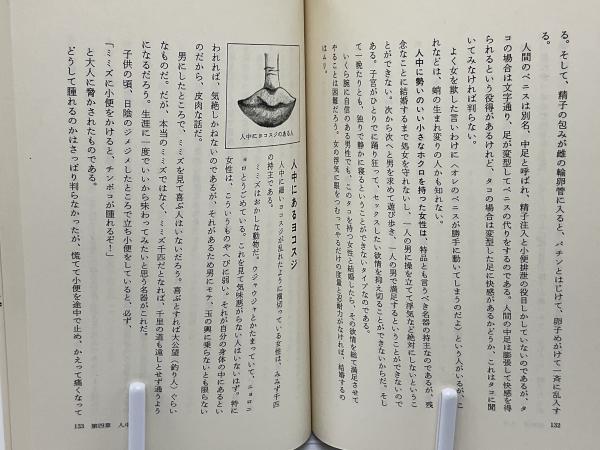 る。そして、精子の包みが雌の輪卵管に入ると、パチンとはじけて、卵子めがけて一斉に乱入す
る。
人間のペニスは別名、中足と呼ばれ、精子注入と小便排泄の役目しかしていないのであるが、タ
コの場合は文字通り、足が変型してペニスの代りをするのである。人間の中足は膨張して快感を得
られるという役得があるけれど、タコの場合は変型した足に快感があるかどうか、これはタコに聞
いてみなければ判らない。
よく女を欺した言いわけに〈オレのペニスが勝手に動いてしまうのだよ〉という人がいるが、こ
れなどは、蛸の生まれ変りの人かも知れない。
人中に勢いのいい小さなホクロを持った女性は、特品とも言うべき名器の持主なのであるが、残
念なことに結婚するまで処女を守れないし、一人の男に操を立てて浮気など絶対にしないというこ
とができない。次から次へと男を求めて遊び歩き、一人の男で満足するということができないので
ある。子宮がひとりでに踊り狂って、セックスしたい欲情を抑え切ることができないからだ。そし
て一晩たりとも、独りで静かに寝るということができないタイプなのである。
いくら腕に自信のある男性でも、このタコを持つ女性と結婚したら、その欲情を総て満足させて
やることは困難だろう。女の浮気に眼をつむってやるだけの度量と忍耐力がなければ、結婚するの
はムリ。
132
人中にヨコスジのある人
人中にあるヨコスジ
人中に細いヨコスジが乱れたように横切っている女性は、みみず千匹
の持主である。
ミミズはおかしな動物だ。ウジャウジャとかたまっていて、ニョロニ
ョロとうごめている。これを見て気味悪がらない人はいないはず。特に
女性は、こういうものやヘビに弱い。それが自分の身体の中にあるとい
われれば、気絶しかねないのであるが、それがあるため男にモテ、玉の輿に乗らないとも限らない
のだから、皮肉な話だ。
男にしたところで、ミミズを見て喜ぶ人はいないだろう。喜ぶとすれば大公望（釣り人）ぐらい
なものだ。だが、本当のミミズではなく、ミミズ千匹だとなれば、千里の道も遠しとせず通うよう
になるだろう。生涯に一度でいいから味わってみたいと思う名器がこれだ。
子供の頃、日陰のジメジメしたところで立ち小便をしていると、必ず、
「ミミズに小便をかけると、チンボコが腫れるぞ！」
と大人に脅かされたものである。
どうして腫れるのかはさっぱり判らなかったが、慌てて小便を途中で止め、かえって痛くなって
133 第四章 人中